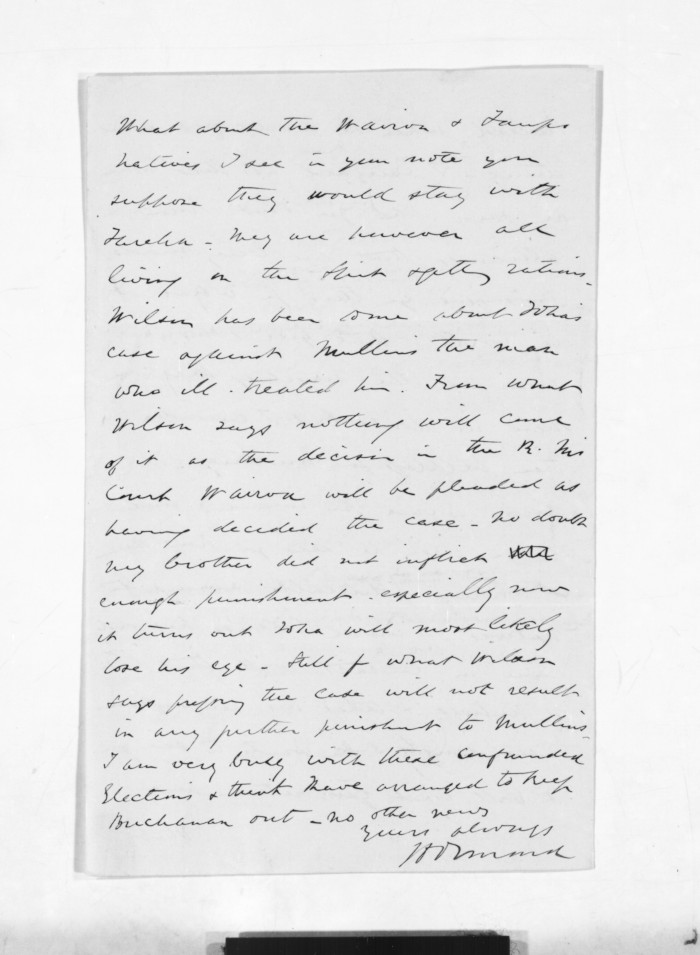 What about the Wairoa & Taupo
natives I see in your note you
suppose they would stay with
Tareha - They are however all
living on the Spit & getting rations -
Wilson has been some about Ihaia's
case against Mullins the man
who ill-treated him. From what
Wilson says nothing will come
of it as the decision in the R. Ms
Court Wairoa will be pleaded as
having decided the case - no doubt
my brother did not inflict
enough punishment. especially now
it turns out will most likely
lose his eye - Still f what Wilson
says pressing the case will not result
in any further punishment to Mullins -
I am very busy with these confounded
Elections & think I have arranged to keep
Buchanan out - no other news
Yours always
JD Ormond